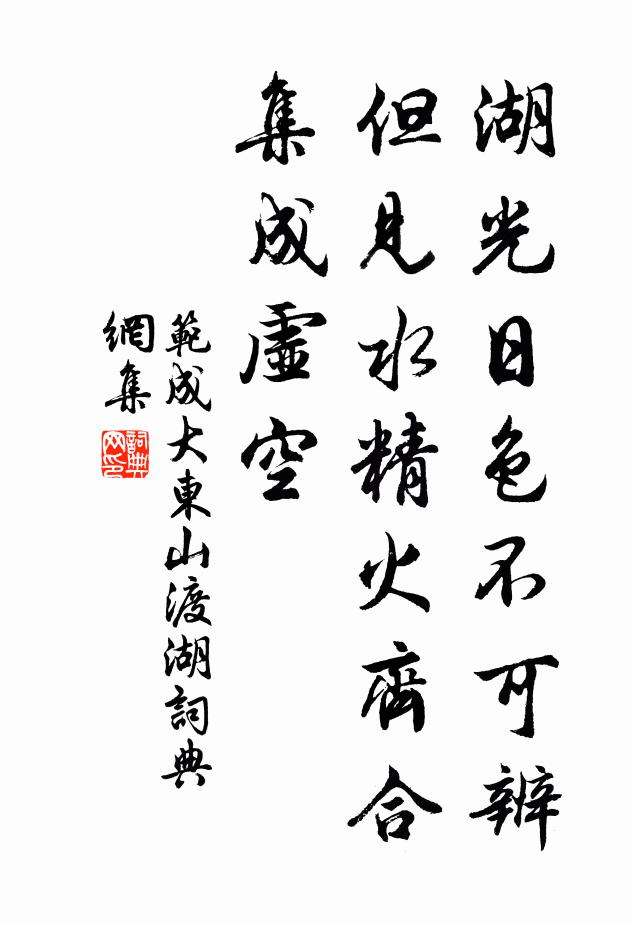 湖光日色不可辨
但見水精火齊合
集成虛空
範成大東山渡湖詞典
網集
詞典
网印